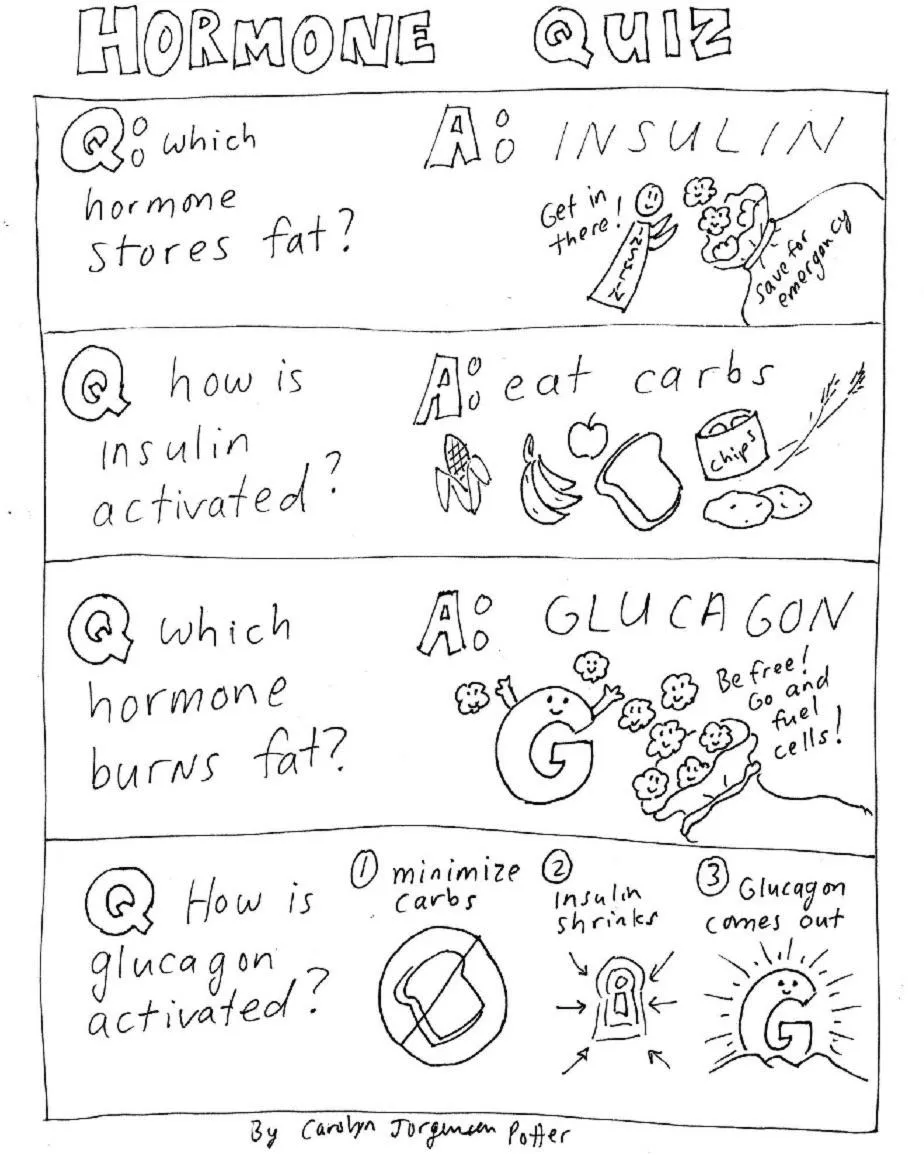 HORMONE QUIZ
Q: which
hormone
stores fat?
A: INSULIN
Get in
there!
INSULIN
save for
emergency
Q how is
insulin
activated?
A: eat carbs
chips
Q which
hormone
burns fat?
A: GLUCAGON
Be free!
Go and
fuel
cells!
G
Q How is
glucagon
activated?
1 minimize
carbs
2
Insulin
shrinks
3 Glucagon
comes out
G
By Carolyn Jorgensen Potter